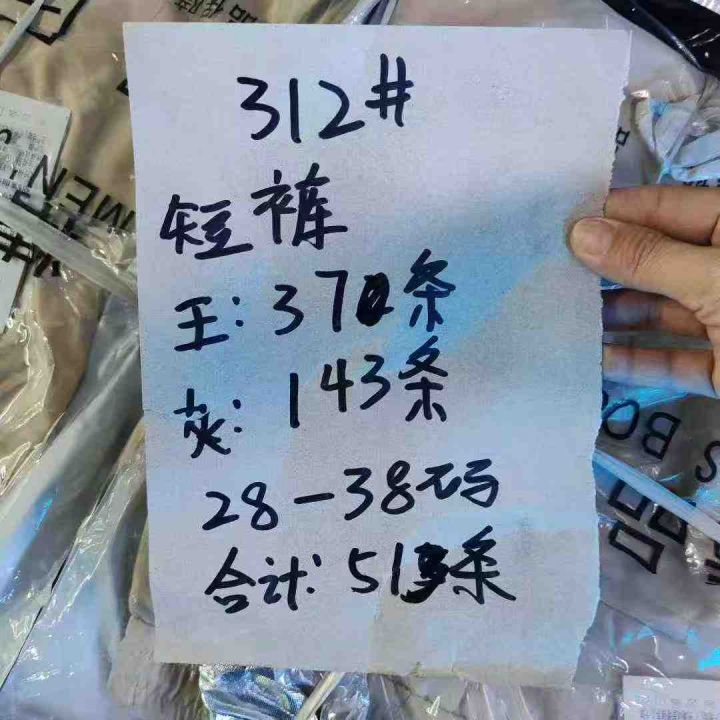 312#
短裤
王: 370条
灰: 143条
28-38码
合计: 513条
MEN
S BO
品